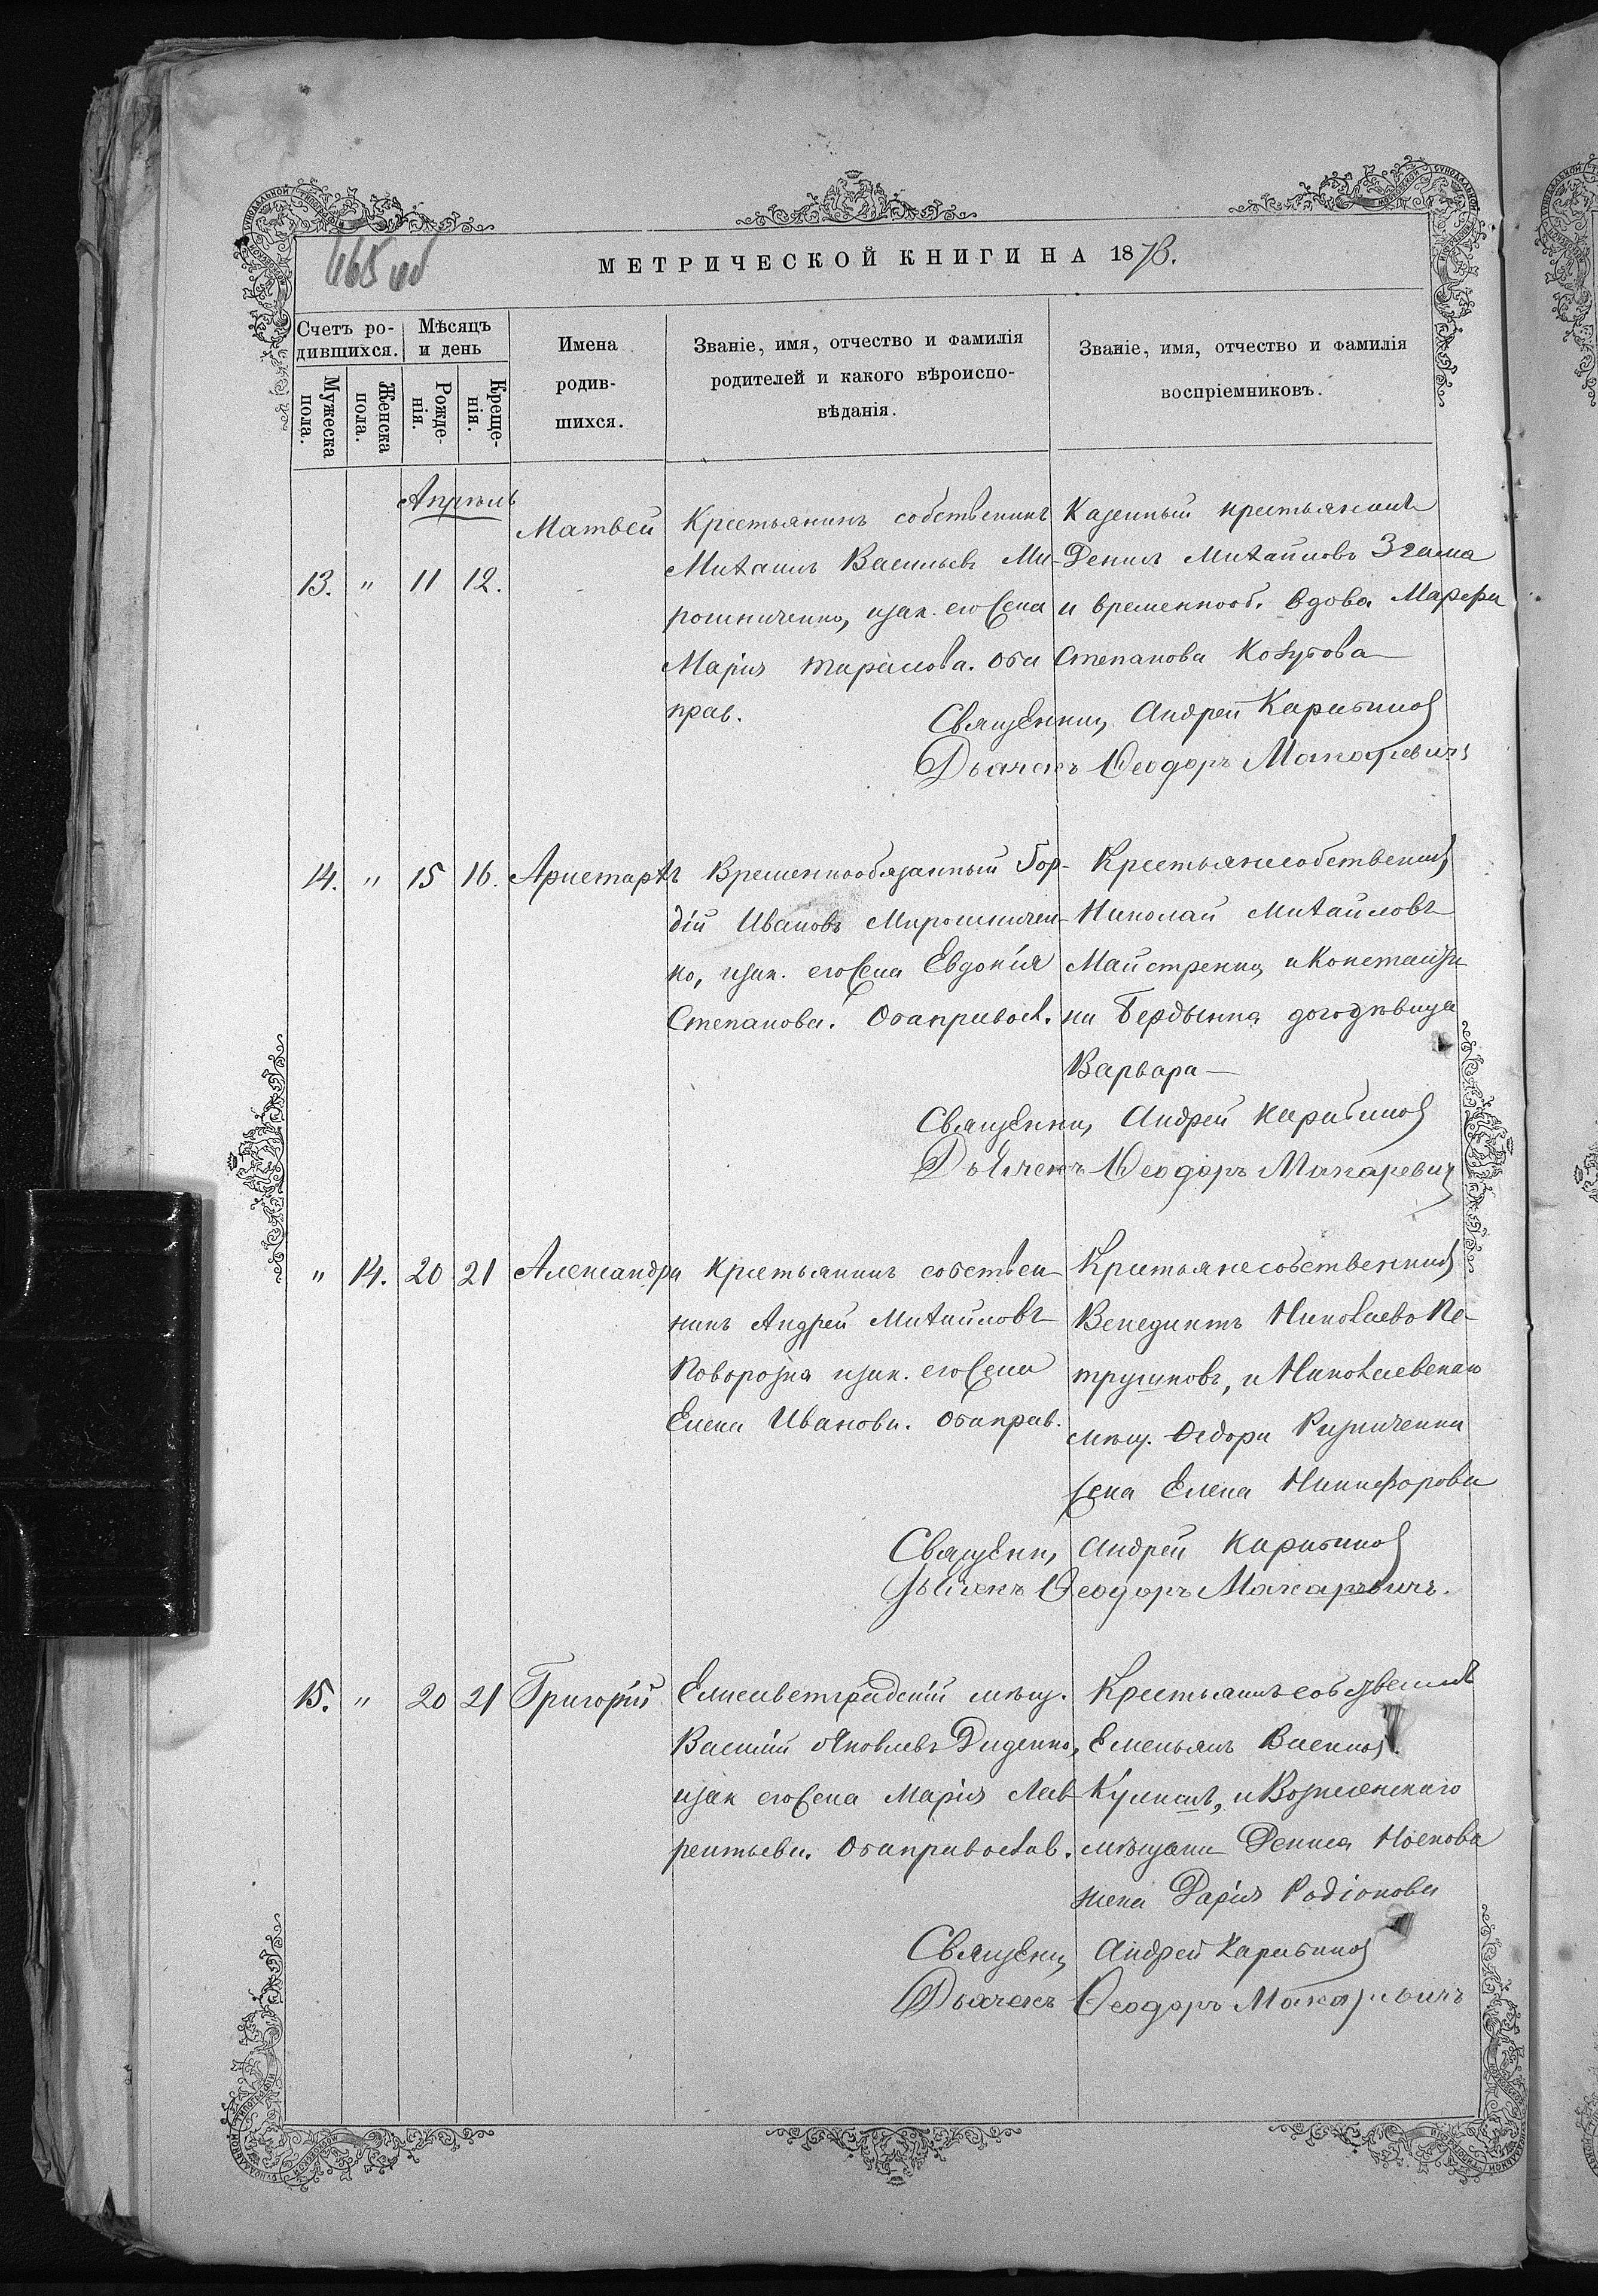 МЕТРИЧЕСКОЙ КНИГИ НА 1878.
Счетъ ро-
дившихся.
Мѣсяцъ
и день
Мужеска
пола.
Женска
пола.
Рожде-
нія.
Креще-
нія.
Имена
родив-
шихся.
Званіе, имя, отчество и фамилія
родителей и какого вѣроиспо-
вѣданія.
Званіе, имя, отчество и фамилія
воспріемниковъ.
Апрѣль
13. " 11 12.
Матвей
Крестьянинъ собственникъ
Михаилъ Васильевъ Ми-
рошниченко, и зак. его жена
Марія Тарасова. Оба
прав.
Казенный крестьянинъ
Данiилъ Михайловъ
и временнооб. вдова Марфа
Степанова
Священник Андрей Карабинов
Дьячекъ Ѳеодоръ Макаревичъ
14. " 15 16. Аристархъ
Временнообязанный Гор-
дій Ивановъ Мирошничен-
ко, и зак. его жена Евдокія
Степанова. Оба правосл.
Крестьяне собственник
Николай Михайловъ
Майстренко, и Константи
на Бердынка дочь дѣвица
Варвара
Священник Андрей Карабинов
Дьячекъ Ѳеодоръ Макаревич
" 14. 20 21 Александра
Крестьянинъ собствен
никъ Андрей Михайловъ
Поворозна и зак. его жена
Елена Иванова. Оба прав.
Крестьяне собственник
Венедиктъ Николаевъ Пе-
трушковъ, и Николаевскаго
мѣщ. Ѳедора Ризниченка
жена Елена Никифорова
Священн, Андрей Карабинов
Дьячекъ Ѳеодоръ Макаревичъ.
15. " 20 21 Григорій
Елисаветградскій мѣщ.
Василій Яковлевъ Диденко,
и зак его жена Марія Лав
рентьева. Оба православ.
Крестьянинъ собственникъ
Емельянъ
и Вознесенскаго
мѣщани Дениса Носкова
жена Дарія Родіонова
Священ, Андрей Карабинов
Дьячекъ Ѳеодоръ Макаревичъ